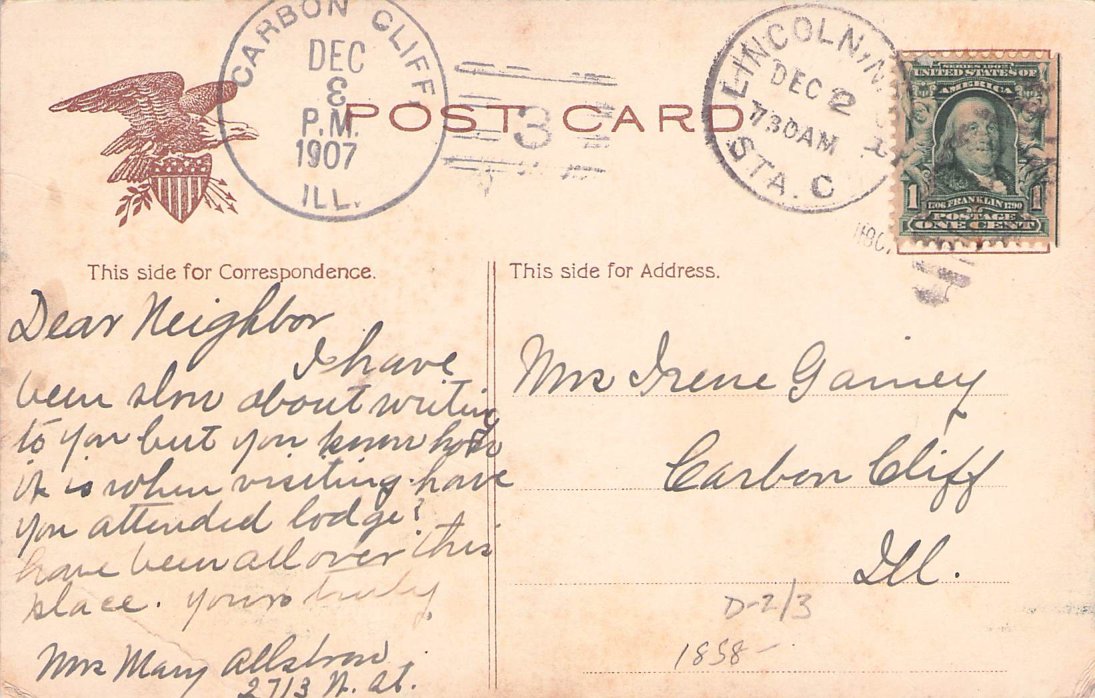 CARBON CLIFF,
DEC
3
P.M.
1907
ILL.
3
LINCOLN, N
DEC 2
730AM
STA. C
SERIES 1902
UNITED STATES OF
AMERICA
1 1
1706 FRANKLIN 1790
POSTAGE
ONE CENT
POST CARD
This side for Correspondence.
Dear Neighbor
I have
been slow about writing
to you but you know how
it is when visiting. have
you attended lodge?
have been all over this
place. yours truly
Mrs Mary
2713 N. St.
This side for Address.
Mrs Irene Gainey
Carbon Cliff
Ill.
D-2/3
1858-